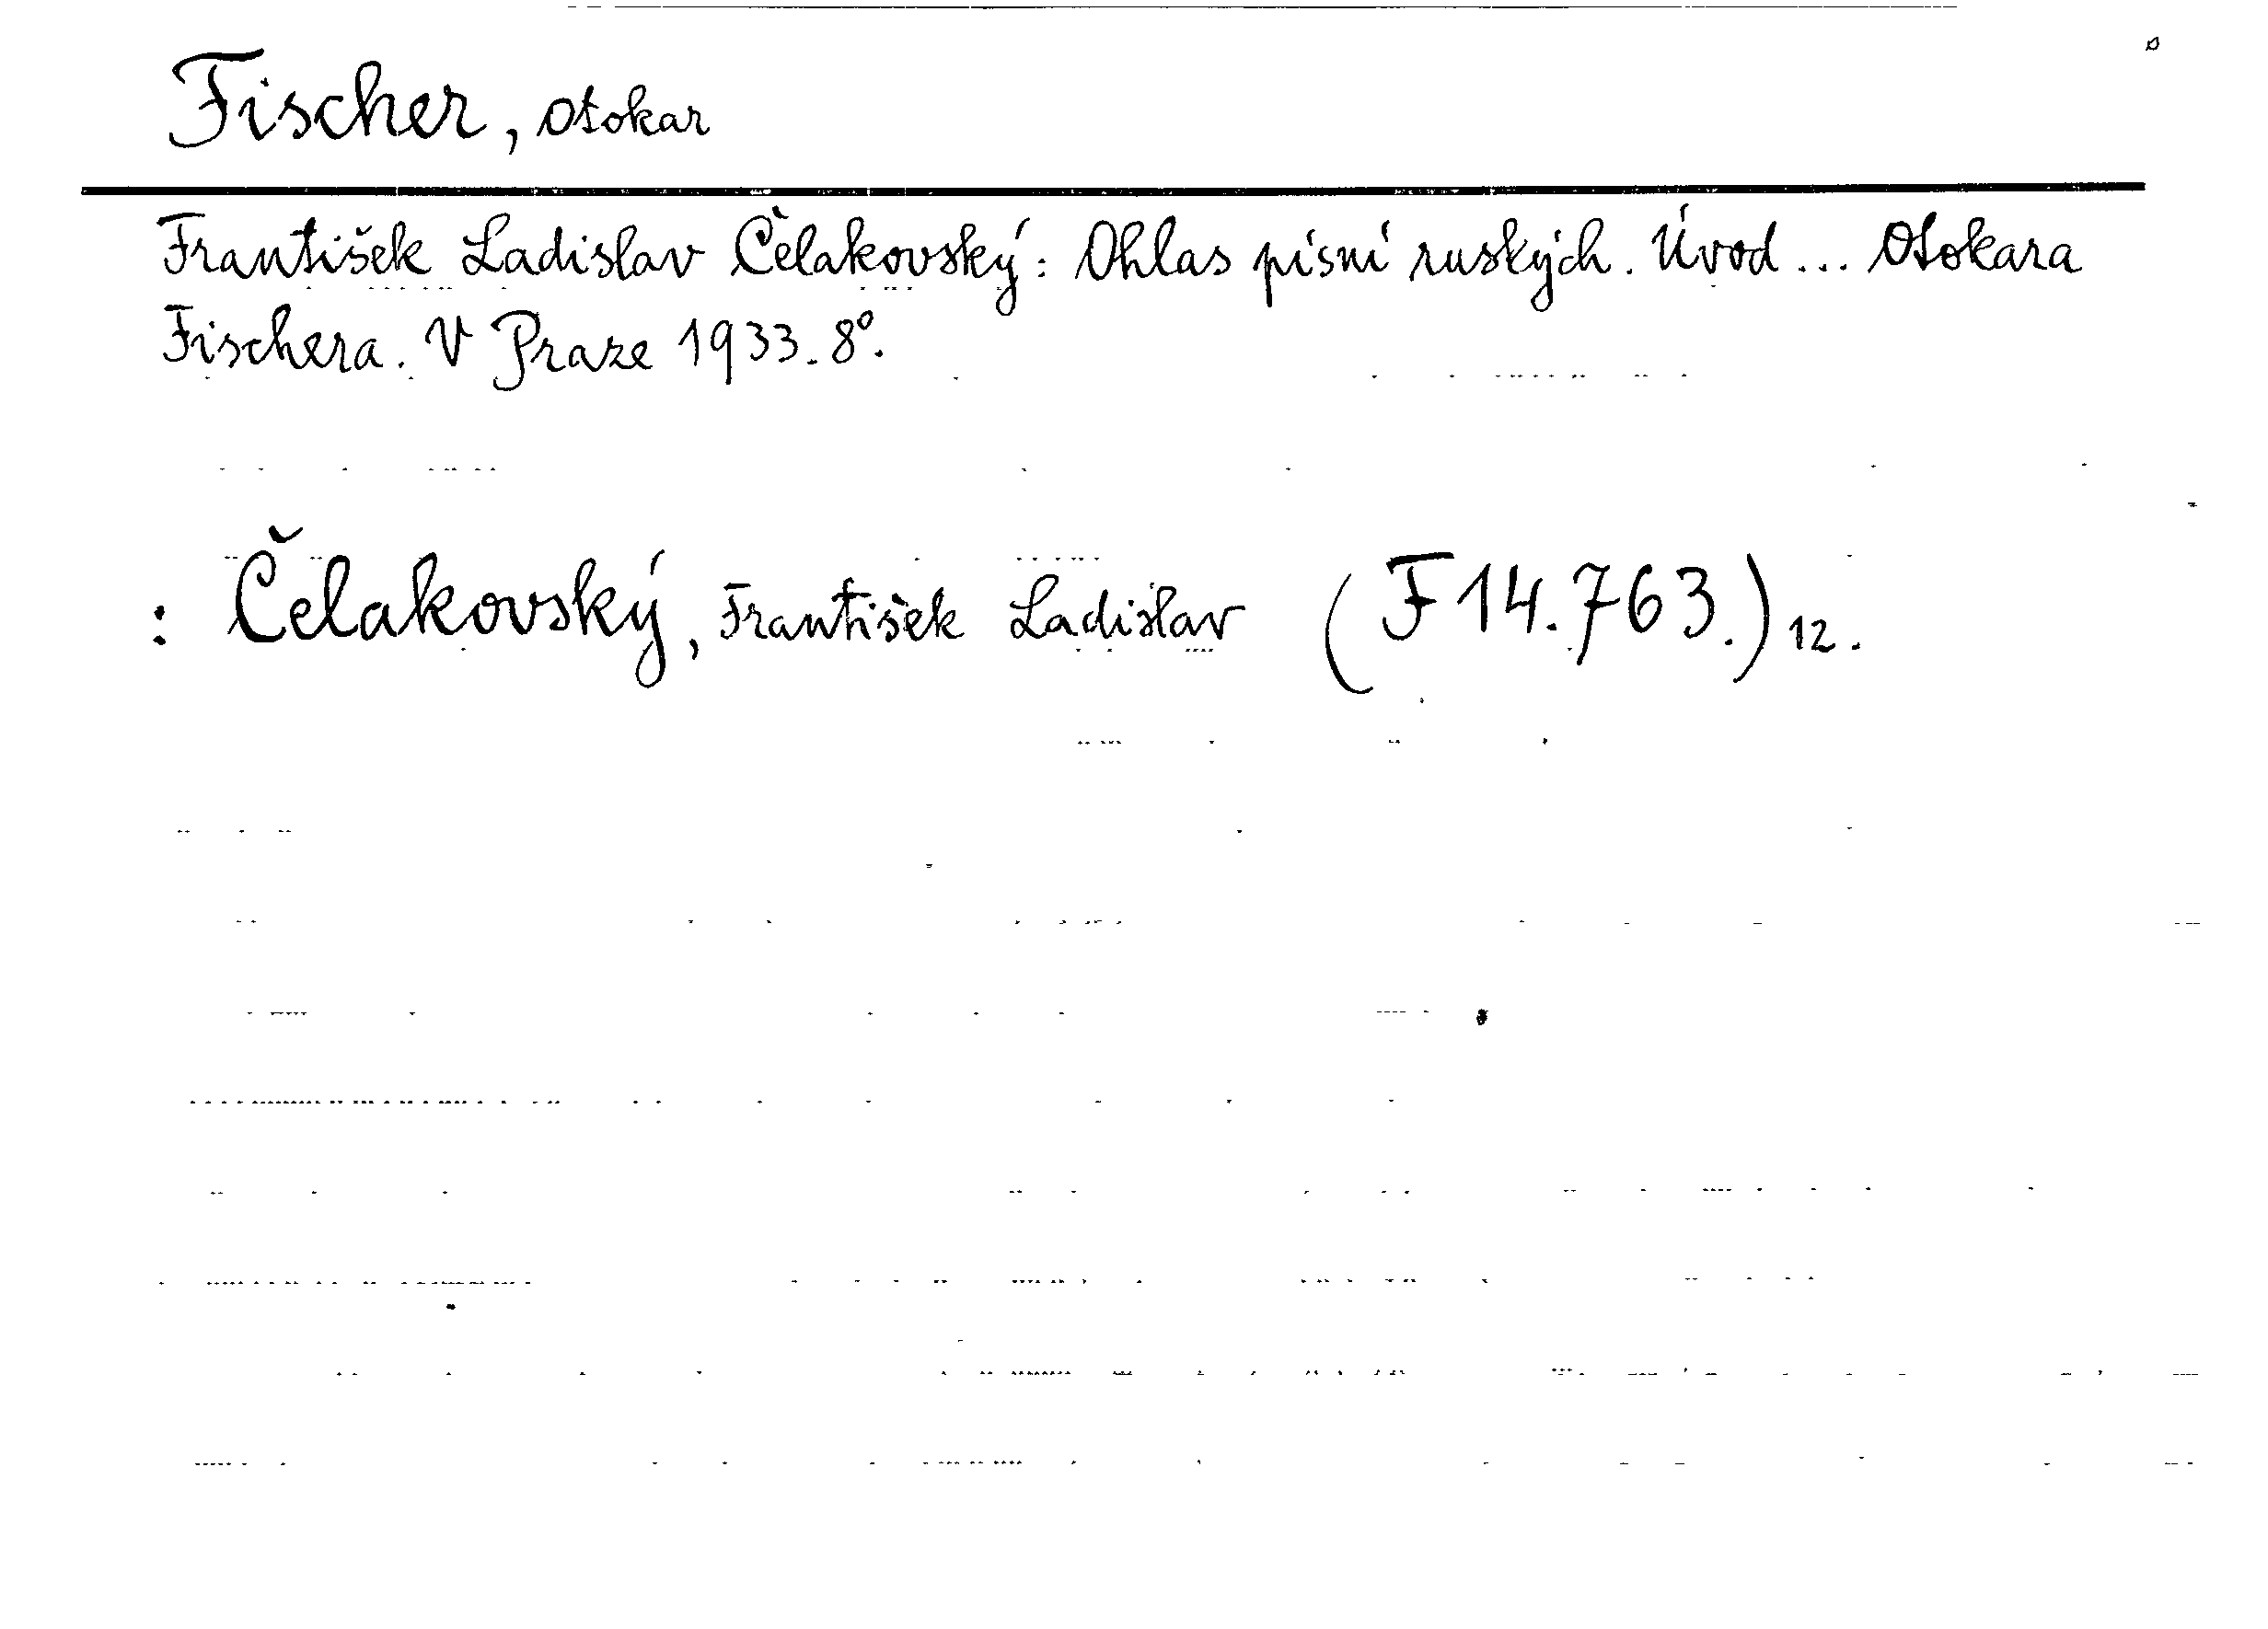 Fischer, Otokar
František Ladislav Čelakovský: Ohlas písní ruských. Úvod... Otokara
Fischera. V Praze 1933. 8°.
: Čelakovský, František Ladislav (F 14.763.) 12.